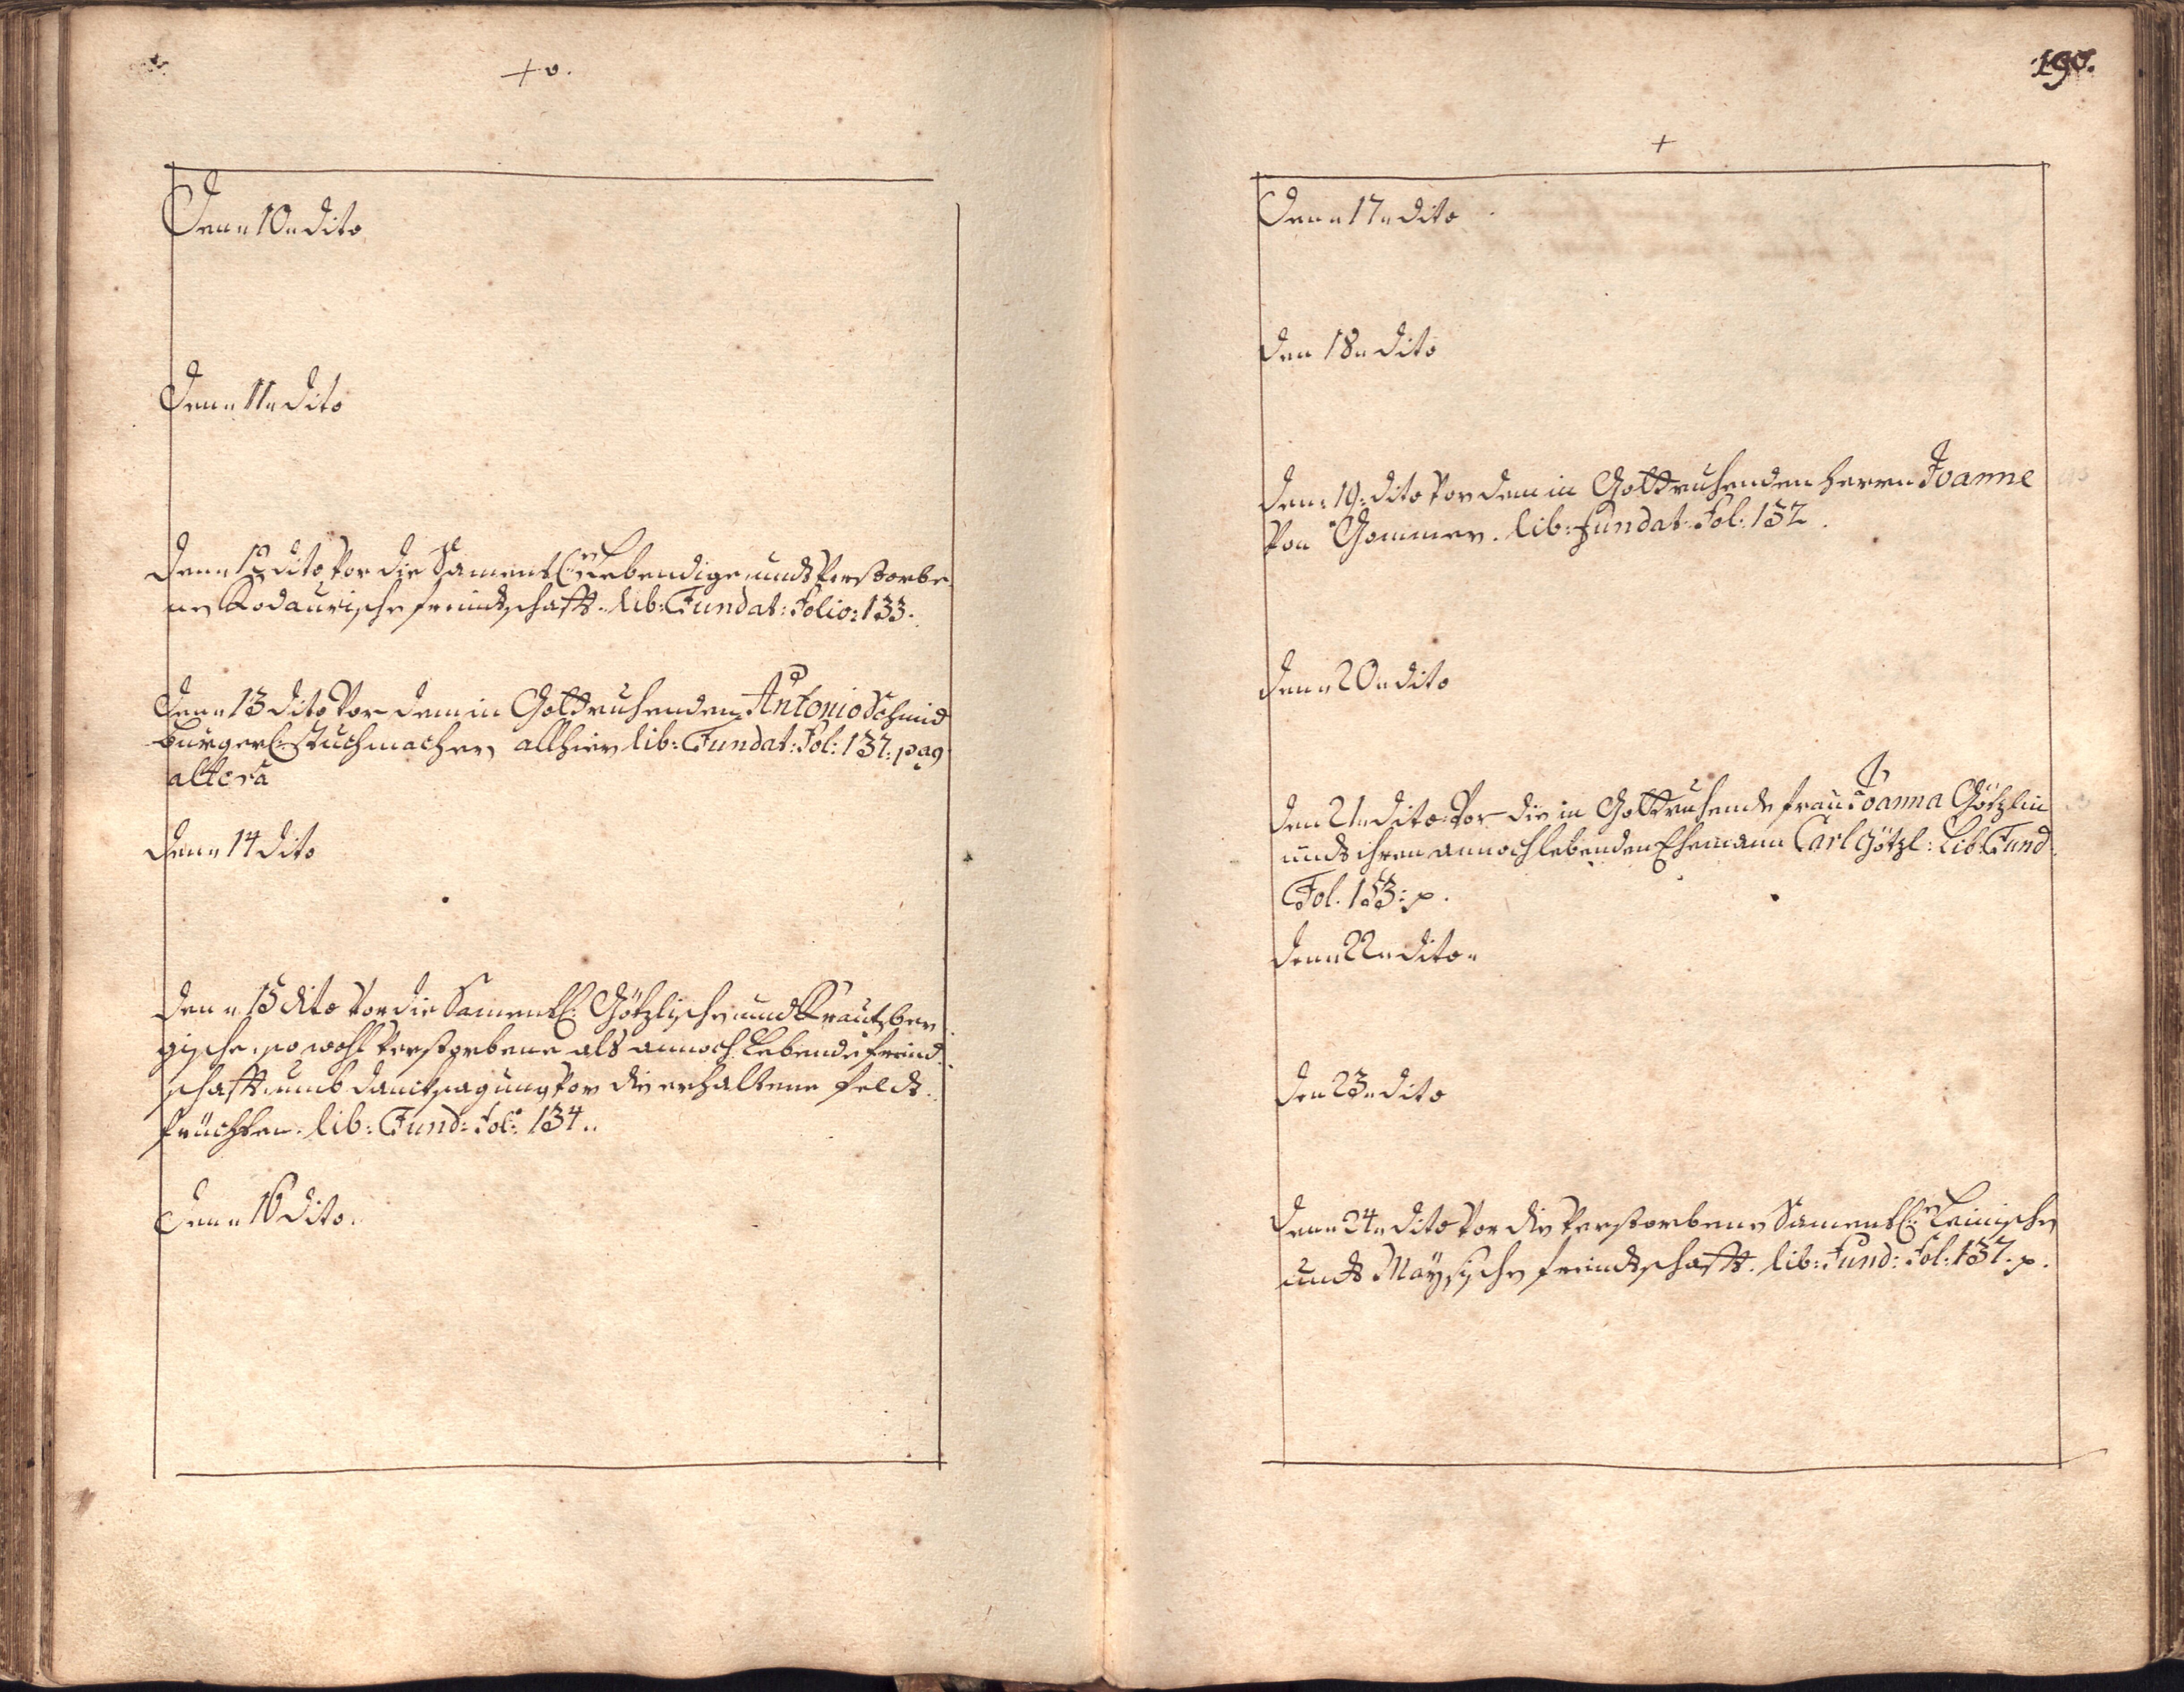 + v.
Den „ 10 „ dito
Den „ 11 „ dito
Den „ 12 dito vor die Samentl: Lebendige, undt verstorbe
ne Kodaurische freindtschafft. lib: Fundat: Folio: 133.
Den „ 13 dito Vor dem in Gott ruhenden Antonio Schmid
burgerl: tuchmacher allhier lib: Fundat: Fol: 137: pag
altera
Den „ 14 dito
Den „ 15 dito vor die Samentl: Götzlische und Krautzber
gische, so wohl verstorbene als annoch Lebende freind
schafft, umb dancksagung vor die erhaltene feldt
früchten. lib: Fund: Fol: 134.
Den „ 16 dito.
190.
+
Den „ 17 „ dito
Den 18 „ dito
Den: 19: dito vor dem in Gott ruhenden Herrn Joanne
von Gommer. lib: Fundat: Fol: 132.
Den „ 20 „ dito
Den 21 „ dito: Vor die in Gott ruhende frau Joanna Götzlin
undt ihren annoch lebenden Ehemann Carl Götzl: Lib: Fund
Fol. 153: p.
Den „ 22 „ dito „
Den 23 „ dito
Den „ 24 „ dito vor die verstorbene Samentl: Leinische
undt Maysische freindtschafft. lib: Fund: Fol: 137. p.